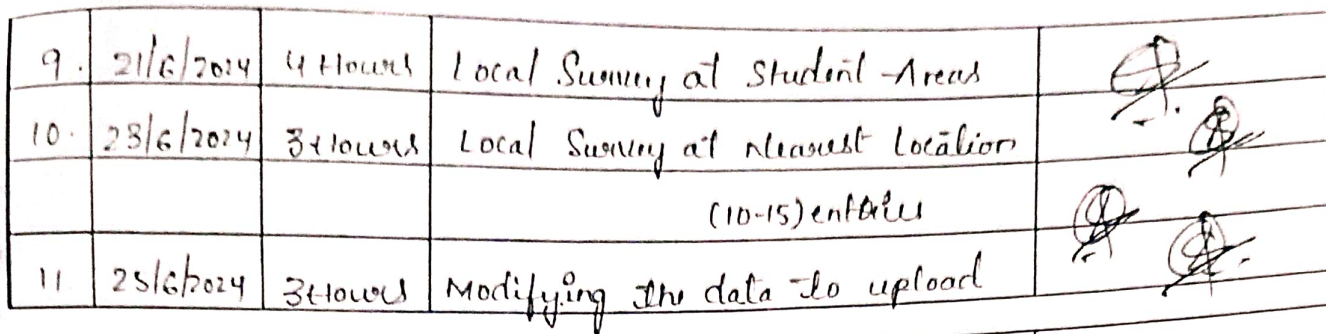 9. 21/6/2024 4 Hours Local Survey at Student Areas
10. 23/6/2024 3 Hours Local Survey at Nearest Location
(10-15) entries
11 25/6/2024 3 Hours Modifying the data to upload